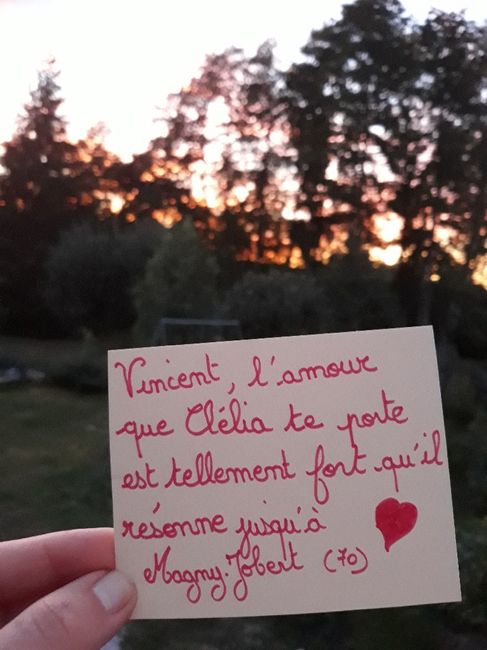 Vincent, l'amour
que Clélia te porte
est tellement fort qu'il
résonne jusqu'à
Magny-Jobert (70)